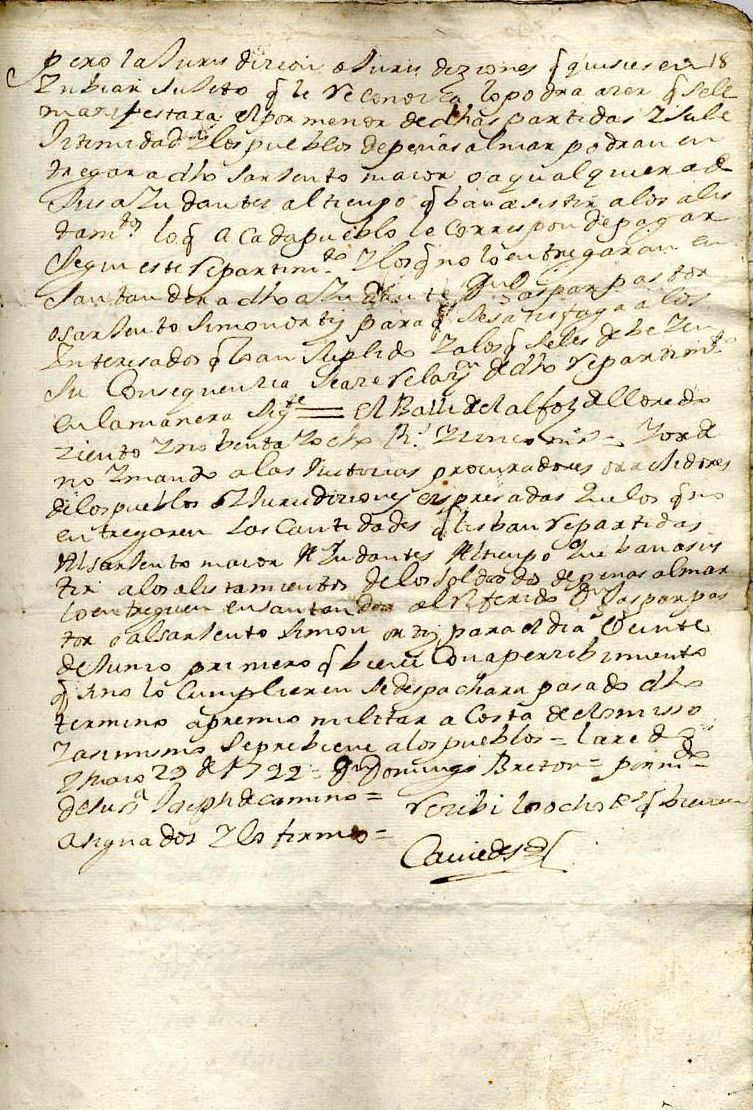 pero la Jurisdizion o Jurisdiziones q̃ quisieren 18
Ynbiar sujeto q̃ le reconozca lo podra azer q̃ se le
manifestara el por menor de dhas partidas y su le
Jitimidad y los pueblos de peñas al mar podran en
tregar a dho sarJento maior o a qualquiera de
sus aYudantes al tiempo q̃ ban a asistir a los alis
tamtos lo q̃ a Cada pueblo le Corresponde pagar
segun este repartimto Y los q̃ no lo entregaran en
santander a dho aYudante Dn Gaspar pastor
o sarJento simon ortiz para q̃ se satisfaga a los
Ynteresados q̃ lo an suplido Y a los q̃ se les debe Y en
su Consequenzia se aze relazn de dho repartimto
en la manera sigte = El Balle del alfoz de lloredo
ziento Y nobenta Y ocho Rs Y zinco mrs = Y orde
no Y mando a las Justizias procuradores o rexidores
de los pueblos o Jurisdiziones espresadas que los q̃ no
entregaren las Cantidades q̃ les ban repartidas
Al sarJento maior o aYudantes al tiempo que ban a asis
tir a los alistamientos de los soldados de penas al mar
lo entreguen en santander al referido Dn Gaspar pas
tor o al sarJento simon ortiz para el dia Veinte
de Junio primero q̃ biene Con aperzibimiento
q̃ si no lo Cumplieren se despachara pasado dho
termino apremio militar a Costa de el omisso
Y asimismo se prebiene a los pueblos = laredo
Y maio 29 de 1722 = Dn Domingo Breton = por mdo
de su sa Joseph de camino = Recibi los ocho Rs q̃ bienen
asignados Y lo firmo =
Caviedes